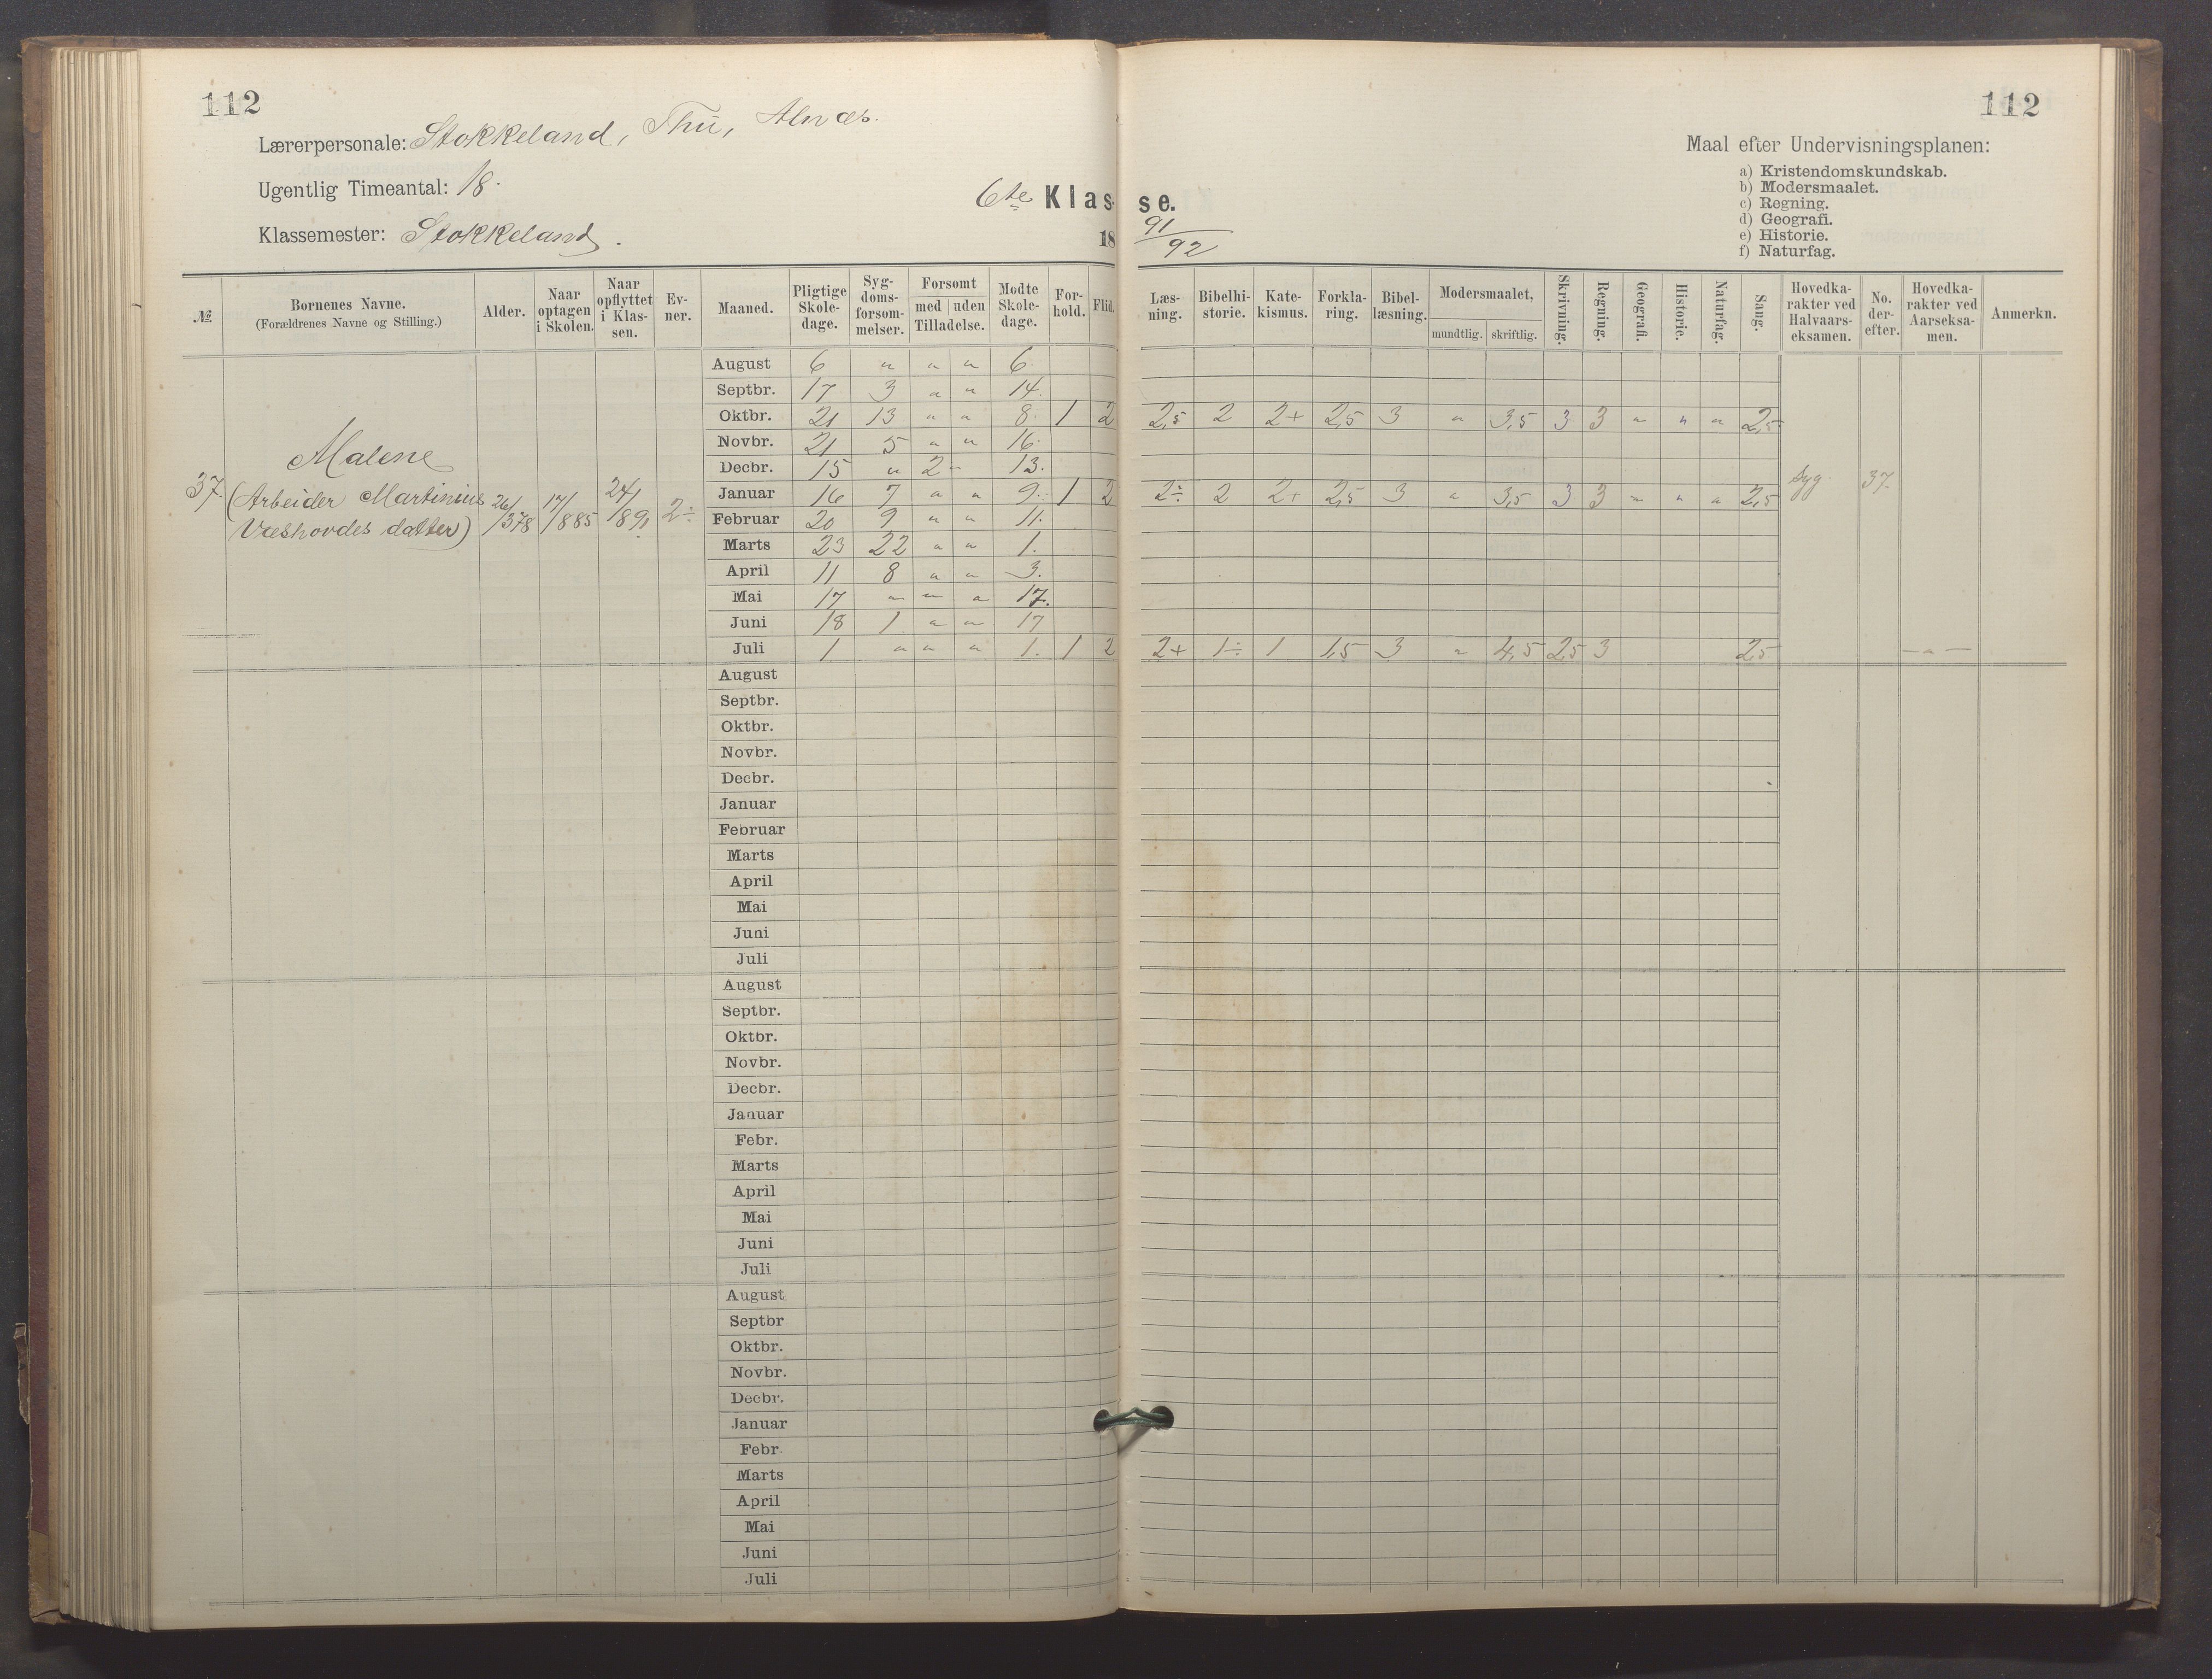 112
Lærerpersonale: Stokkeland, Thu, Alnæs.
Ugentlig Timeantal: 18.
Klassemester: Stokkeland.
6te Klasse.
18 91/92
112
Maal efter Undervisningsplanen:
a) Kristendomskundskab.
b) Modersmaalet.
c) Regning.
d) Geografi.
e) Historie.
f) Naturfag.
№ Børnenes Navne. (Forældrenes Navne og Stilling.) Alder. Naar optagen i Skolen. Naar opflyttet i Klassen. Evner. Maaned. Pligtige Skoledage. Sygdomsforsømmelser. Forsømt med uden Tilladelse. Mødte Skoledage. Forhold. Flid. Læsning. Bibelhistorie. Katekismus. Forklaring. Bibellæsning. Modersmaalet, mundtlig. skriftlig. Skrivning. Regning. Geografi. Historie. Naturfag. Sang. Hovedkarakter ved Halvaarseksamen. No. derefter. Hovedkarakter ved Aarseksamen. Anmerkn.
37. Malene
(Arbeider Martinius
Væshovdes datter)
26/3 78 17/8 85 24/8 91 2÷
August 6 " " " 6.
Septbr. 17 3 " " 14.
Oktbr. 21 13 " " 8. 1 2 2,5 2 2+ 2,5 3 " 3,5 3 3 " " " 2,5
Novbr. 21 5 " " 16.
Decbr. 15 " 2 " 13.
Januar 16 7 " " 9. 1 2 2÷ 2 2+ 2,5 3 " 3,5 3 3 " " " 2,5 Syg. 37.
Februar 20 9 " " 11.
Marts 23 22 " " 1.
April 11 8 " " 3.
Mai 17 " " " 17.
Juni 18 1 " " 17
Juli 1 " " " 1. 1 2 2+ 1÷ 1 1,5 3 " 4,5 2,5 3 2,5 — " —
August
Septbr.
Oktbr.
Novbr.
Decbr.
Januar
Februar
Marts
April
Mai
Juni
Juli
August
Septbr.
Oktbr.
Novbr.
Decbr.
Januar
Febr.
Marts
April
Mai
Juni
Juli
August
Septbr
Oktbr.
Novbr.
Decbr.
Januar
Febr.
Marts
April
Mai
Juni
Juli